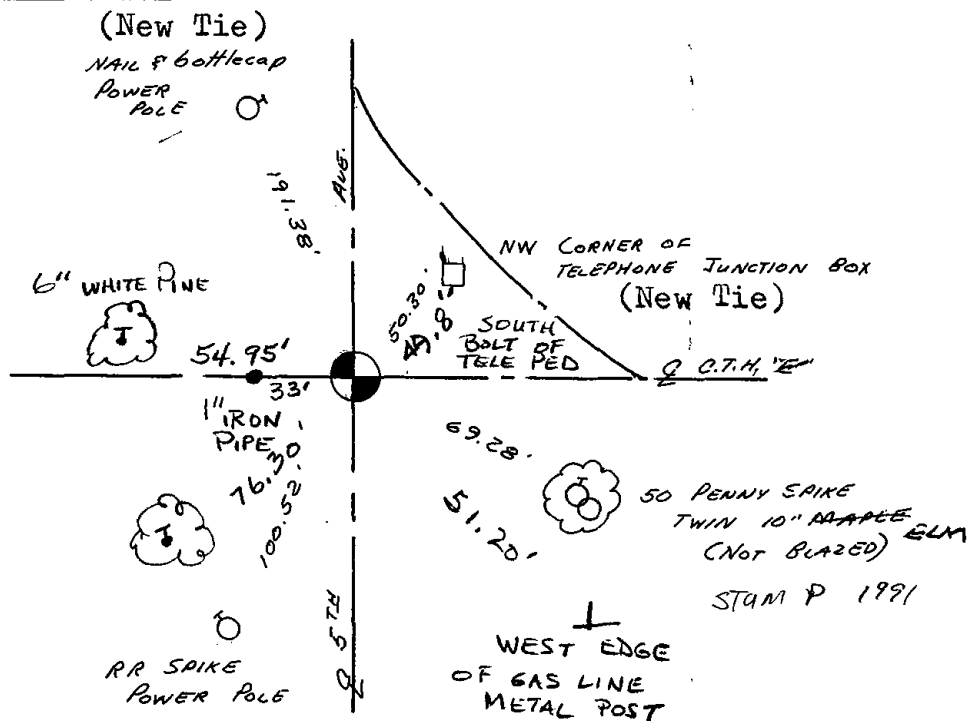 (New Tie)
NAIL & bottlecap
POWER
POLE
191.38'
AVE.
NW CORNER OF
TELEPHONE JUNCTION BOX
(New Tie)
6" WHITE PINE
50.30'
SOUTH
BOLT OF
TELE PED
54.95'
33'
℄ C.T.H. "E"
1" IRON
PIPE
76.30'
100.52'
69.28'
51.20'
50 PENNY SPIKE
TWIN 10" MAPLE ELM
(NOT BLAZED)
STUMP 1991
℄ 5TH
WEST EDGE
OF GAS LINE
METAL POST
RR SPIKE
POWER POLE